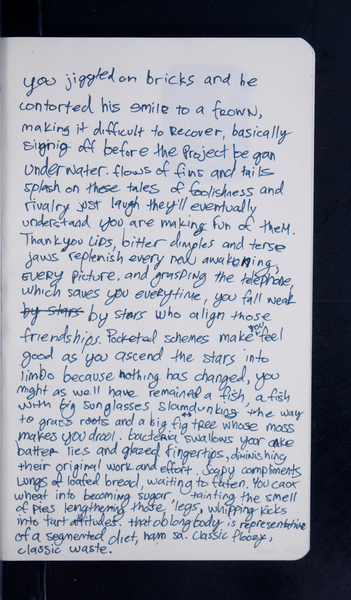 you jiggled on bricks and he
contorted his smile to a frown,
making it difficult to recover, basically
signig off before the project began
underwater. flows of fins and tails
splash on these tales of foolishness and
rivalry just laugh they'll eventually
understand you are making fun of them.
Thank you Lips, bitter dimples and terse
jaws replenish every new awakening,
every picture. and grasping the telephone,
which saves you everytime, you fall weak
by stars by stars who align those
friendships. Pocketed schemes make you feel
good as you ascend the stars into
limbo because nothing has changed, you
might as well have remained a fish, a fish
with big sunglasses slamdunking the way
to grass roots and a big fig tree whose mass
makes you drool. bacteria swallows your cake
batter lies and glazed fingertips, diminishing
their original work and effort. Soapy compliments
Lungs of loafed bread, waiting to fatten. You coax
wheat into becoming sugar, tainting the smell
of pies lengthening those legs, whipping kicks
into tart attitudes. that oblong body is representative
of a segmented diet, ham sa. classic floozy,
classic waste.